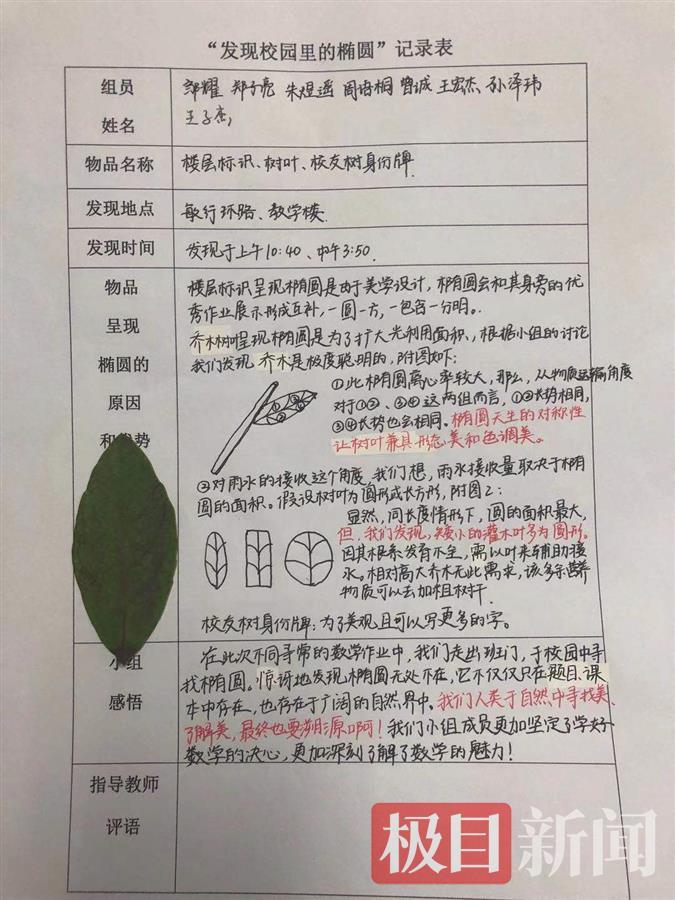 “发现校园里的椭圆”记录表
组员
姓名
郑子亮 朱煜遥 周语桐 曾诚 王宏杰 孙泽玮
王子
物品名称
楼层标识、树叶、校友树身份牌.
发现地点
敏行环路、教学楼.
发现时间
发现于上午10:40、中午3:50.
物品
呈现
椭圆的
原因
楼层标识呈现椭圆是由于美学设计,椭圆会和其身旁的优
秀作业展示形成互补,一圆一方,一包含一分明。
乔木树叶呈现椭圆是为了扩大光利用面积,根据小组的讨论
我们发现,乔木是极度聪明的,附图如下:
①此椭圆离心率较大,那么,从物质运输角度
对于①②、③④这两组而言,①②长势相同,
③④长势也会相同。椭圆天生的对称性
让树叶兼具形态美和色调美。
① ② ③ ④
②对雨水的接收这个角度,我们想,雨水接收量取决于椭
圆的面积。假设树叶为圆形或长方形,附图2:
显然,同长度情形下,圆的面积最大,
但,我们发现,矮小的灌木叶多为圆形。
因其根系发育不全,需以叶来辅助接
水。相对高大乔木无此需求,该多余营养
物质可以去加粗树干.
校友树身份牌:为了美观且可以写更多的字。
小组
感悟
在此次不同寻常的数学作业中,我们走出班门,于校园中寻
找椭圆。惊讶地发现椭圆无处不在,它不仅仅只在题目、课
本中存在,也存在于广阔的自然界中。我们人类于自然中寻找美、
了解美,最终也要溯源啊!我们小组成员更加坚定了学好
数学的决心,更加深刻了解了数学的魅力!
指导教师
评语
极目新闻